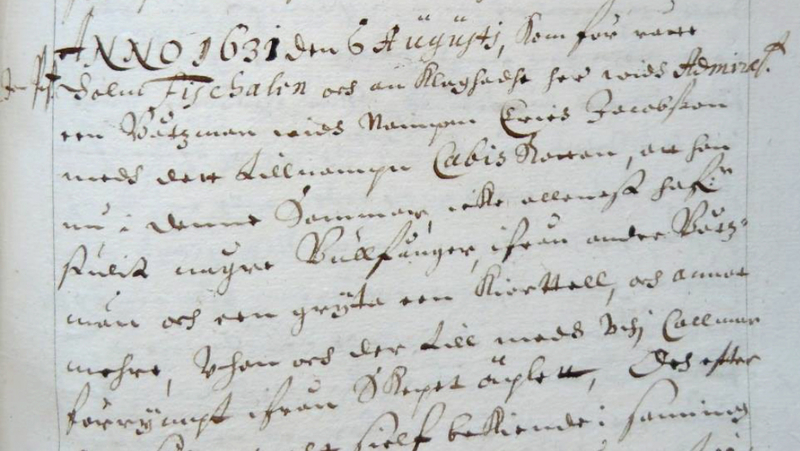 ANNO 1631 den 6 Augustj, kom för rätte
holm Fischalen och an klaghade her widh Admiral.
een Båtzman widh Nampn Erich Jacobsson
medh dett tillnampn Cabis Knecten, att han
nu i denne Sommar, icke allenast hafr
stulit någre Bullfånger, ifrån andre Båtz=
män och een gryta een kiorttell, och annat
mehre, Uthan och der till medh Vthj Callmar
förrÿmpt ifrån Skepet äplett, Och efter
sielf bekiende i sanning